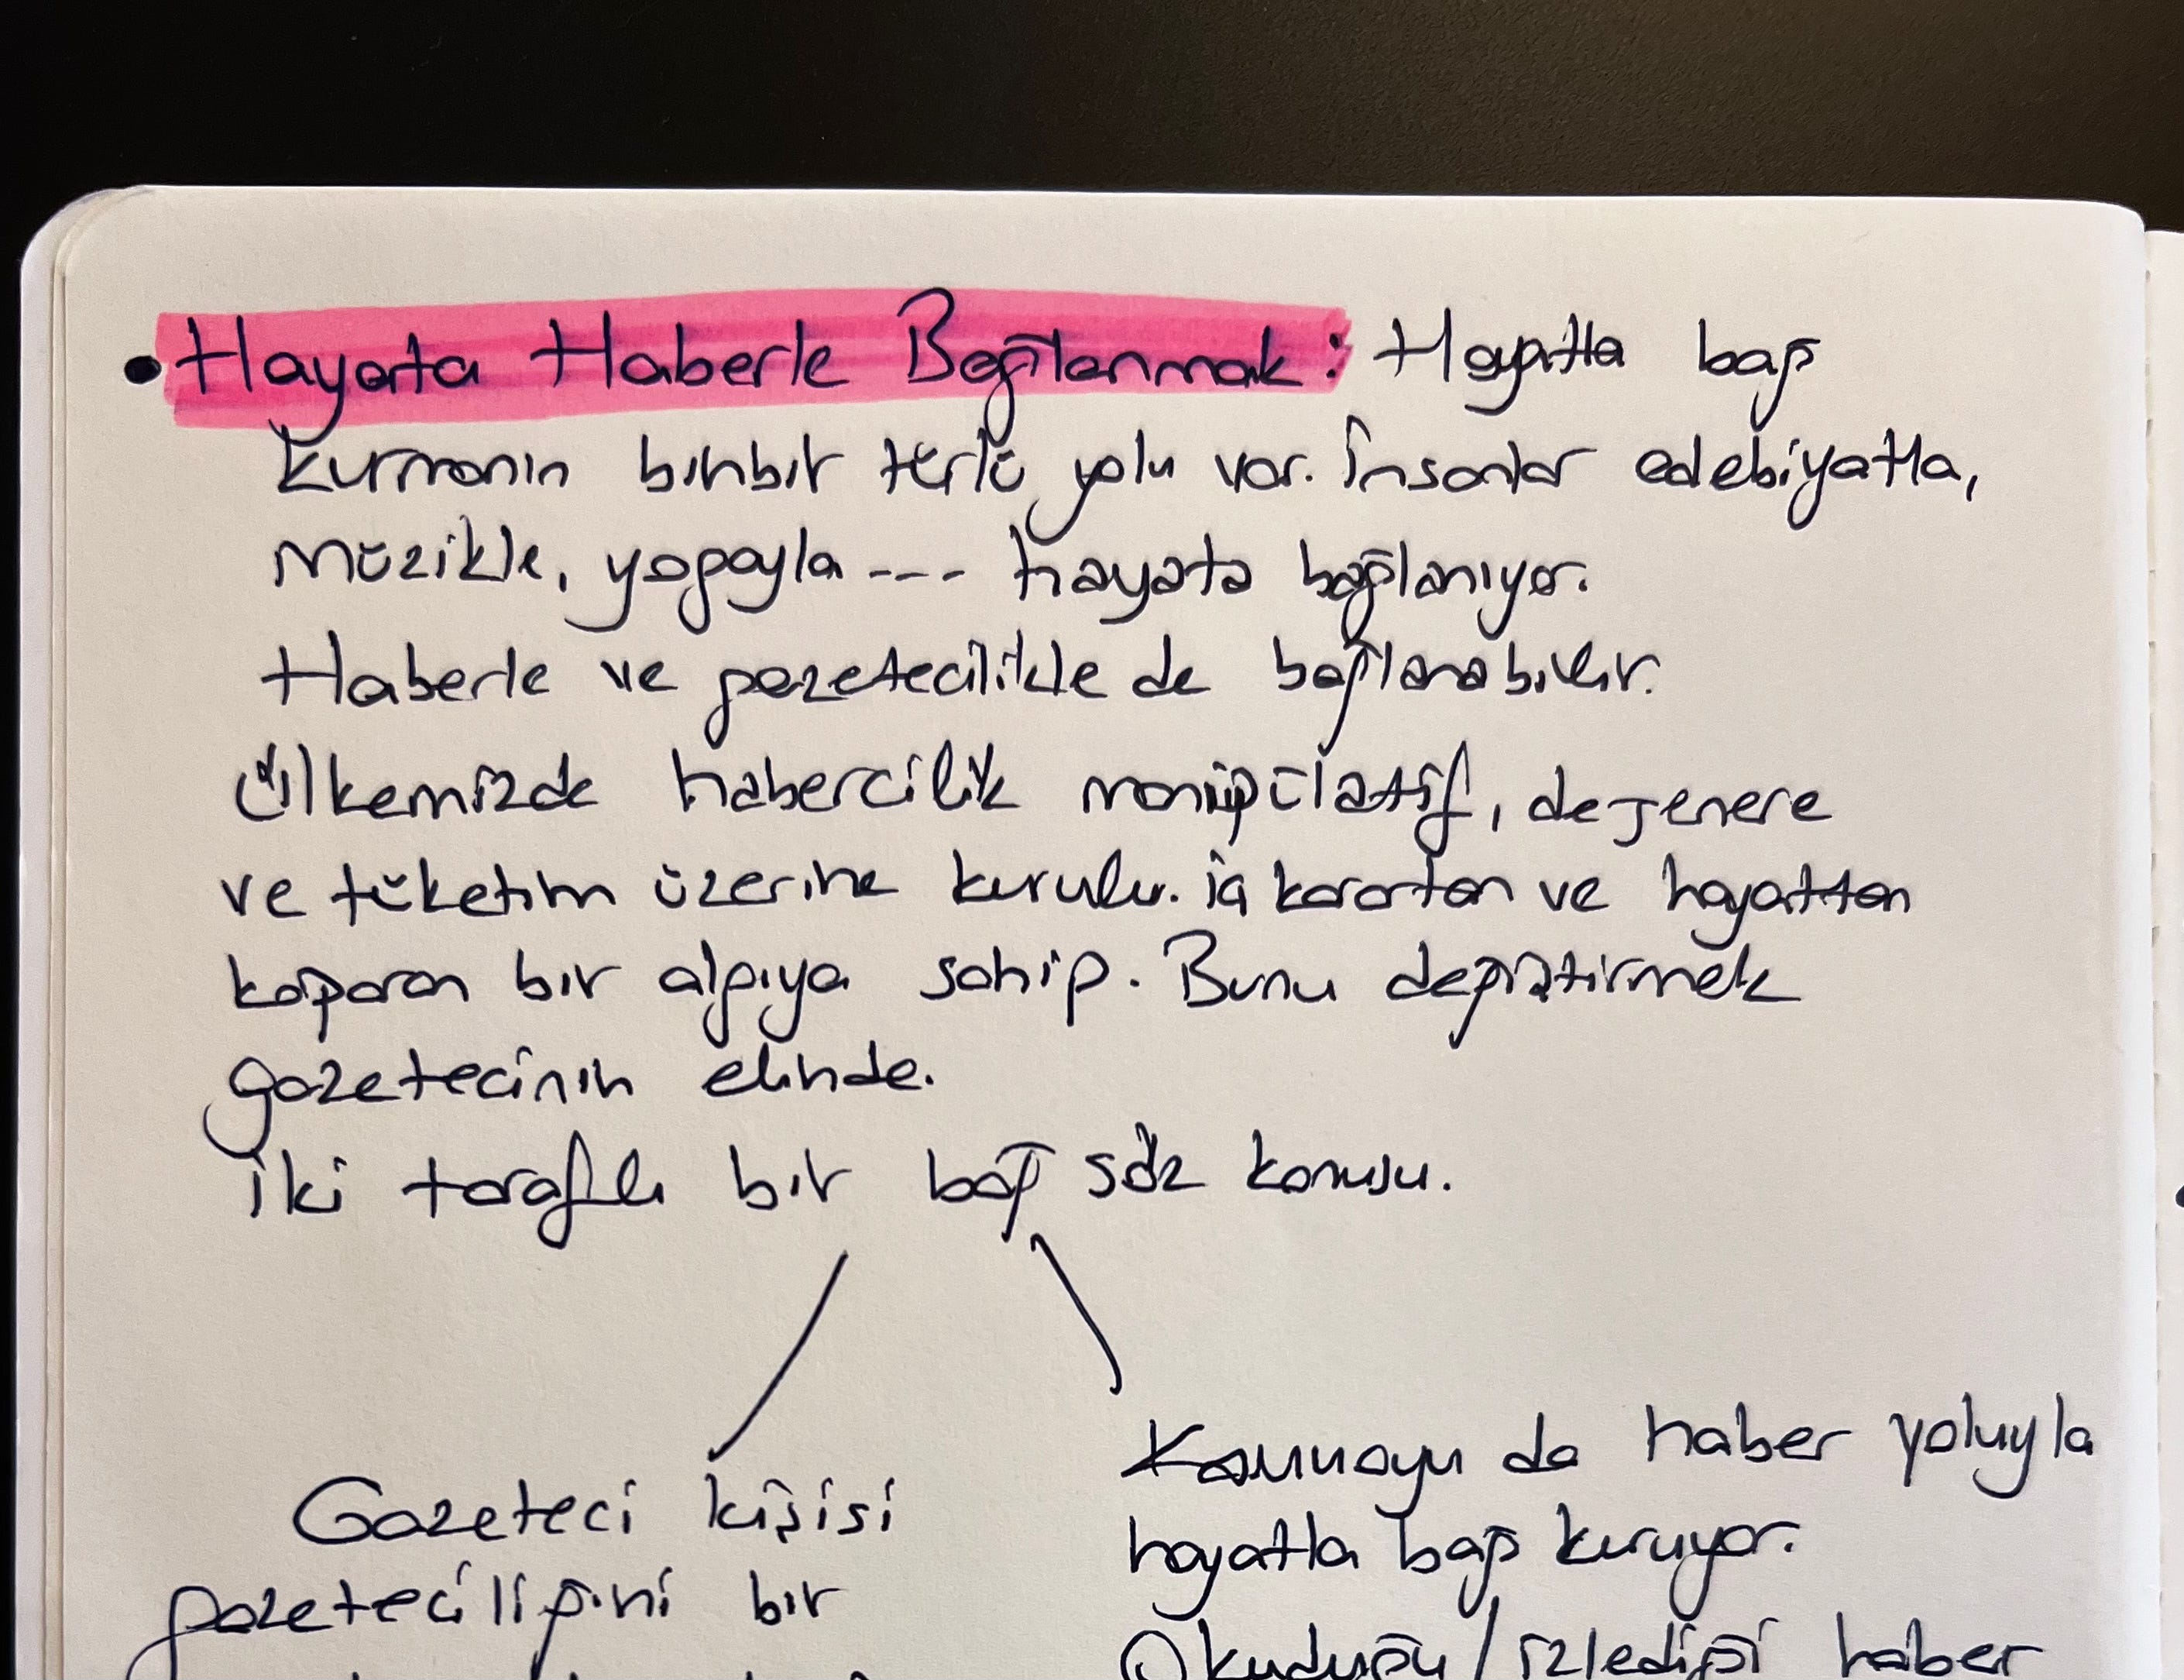 • Hayata Haberle Bağlanmak: Hayatla bağ
kurmanın binbir türlü yolu var. İnsanlar edebiyatla,
müzikle, yogayla --- hayata bağlanıyor.
Haberle ve gazetecilikle de bağlanabilir.
Ülkemizde habercilik manipülatif, dejenere
ve tüketim üzerine kurulu. İç karartan ve hayattan
koparan bir algıya sahip. Bunu değiştirmek
gazetecinin elinde.
İki taraflı bir bağ söz konusu.
Gazeteci kişisi
gazeteciliğini bir
Kamuoyu da haber yoluyla
hayatla bağ kuruyor.
Okuduğu/izlediği haber